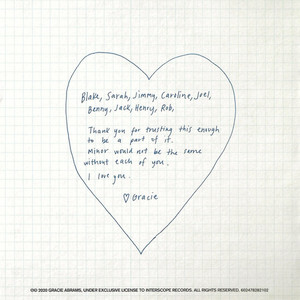 Blake, Sarah, Jimmy, Caroline, Joel,
Benny, Jack, Henry, Rob,
Thank you for trusting this enough
to be a part of it.
Minor would not be the same
without each of you.
I love you.
♡ Gracie
℗© 2020 GRACIE ABRAMS, UNDER EXCLUSIVE LICENSE TO INTERSCOPE RECORDS. ALL RIGHTS RESERVED.